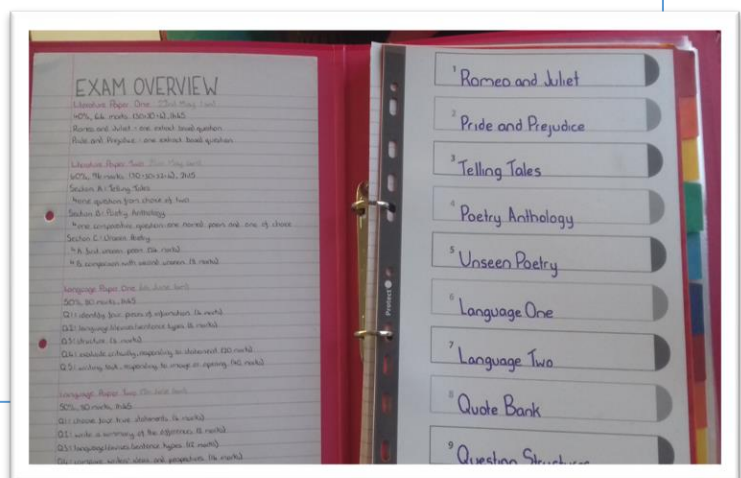 EXAM OVERVIEW
Literature Paper One
40%, 64 marks (30+30+4), 1h45
Romeo and Juliet: one extract based question
Pride and Prejudice: one extract based question
Literature Paper Two
60%, 96 marks (30+30+32+4), 2h15
Section A: Telling Tales
one question from choice of two
Section B: Poetry Anthology
one comparative question: one named poem and one of choice
Section C: Unseen Poetry
A: first unseen poem (24 marks)
B: comparison with second unseen (8 marks)
Language Paper One
50%, 80 marks, 1h45
Q1: identify four pieces of information (4 marks)
Q2: language/devices/sentence types (8 marks)
Q3: structure (8 marks)
Q4: evaluate critically, responding to statement (20 marks)
Q5: writing task, responding to image or opening (40 marks)
Language Paper Two
50%, 80 marks, 1h45
Q1: choose four true statements (4 marks)
Q2: write a summary of the differences (8 marks)
Q3: language/devices/sentence types (12 marks)
Q4: compare writers' ideas and perspectives (16 marks)
1 Romeo and Juliet
2 Pride and Prejudice
3 Telling Tales
4 Poetry Anthology
5 Unseen Poetry
6 Language One
7 Language Two
8 Quote Bank
9 Question Structures